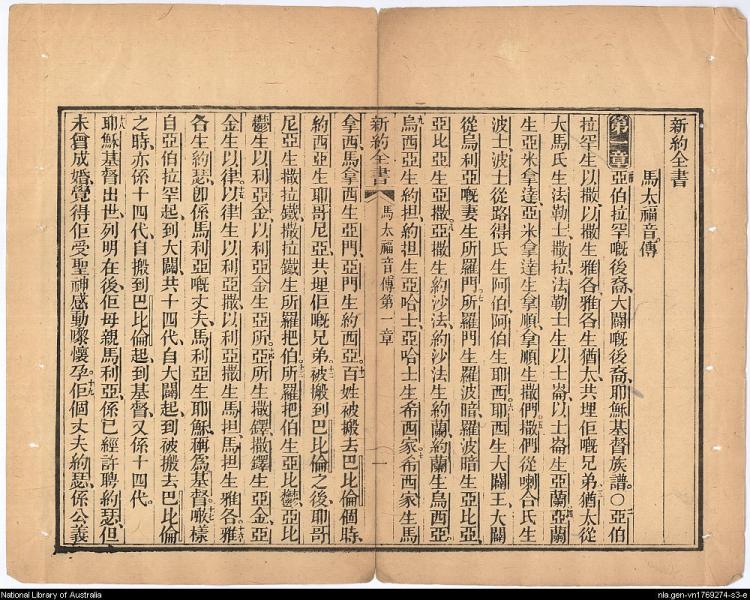 新約全書
馬太福音傳
第一章 亞伯拉罕嘅後裔、大闢嘅後裔、耶穌基督族譜。○亞伯
拉罕生以撒、以撒生雅各、雅各生猶太共埋佢嘅兄弟、猶太從
大馬氏生法勒士、撒拉、法勒士生以士崙、以士崙生亞蘭、亞蘭
生亞米拿達、亞米拿達生拿順、拿順生撒們、撒們從喇合氏生
波士、波士從路得氏生阿伯、阿伯生耶西、耶西生大闢王、大闢
從烏利亞嘅妻生所羅門、所羅門生羅波暗、羅波暗生亞比亞、
亞比亞生亞撒、亞撒生約沙法、約沙法生約蘭、約蘭生烏西亞、
烏西亞生約担、約担生亞哈士、亞哈士生希西家、希西家生馬
新約全書 馬太福音傳第一章 一
拿西、馬拿西生亞們、亞們生約西亞。百姓被搬去巴比倫個時、
約西亞生耶哥尼亞、共埋佢嘅兄弟。被搬到巴比倫之後、耶哥
尼亞生撒拉鐵、撒拉鐵生所羅把伯、所羅把伯生亞比鬱、亞比
鬱生以利亞金、以利亞金生亞所、亞所生撒鐸、撒鐸生亞金、亞
金生以律、以律生以利亞撒、以利亞撒生馬担、馬担生雅各、雅
各生約瑟、卽係馬利亞嘅丈夫、馬利亞生耶穌、稱爲基督。噉樣
自亞伯拉罕起到大闢、共十四代、自大闢起到被搬去巴比倫
之時、亦係十四代、自搬到巴比倫起到基督、又係十四代。
耶穌基督出世、列明在後、佢母親馬利亞、係已經許聘約瑟、但
未曾成婚、覺得佢受聖神感動嚟懷孕。佢個丈夫約瑟、係公義
National Library of Australia
nla.gen-vn1769274-s3-e